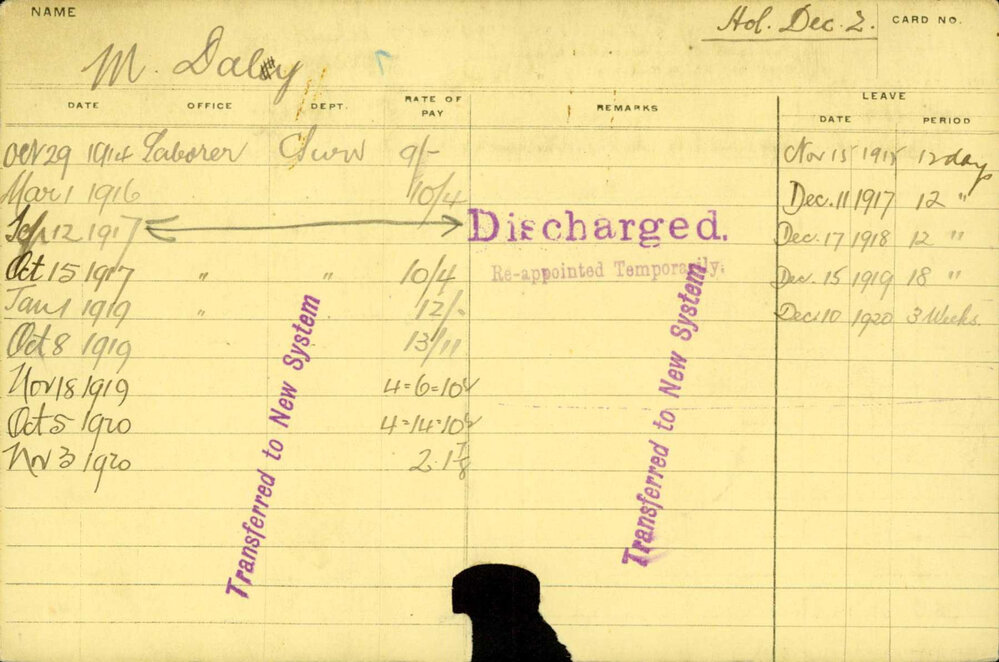 NAME Hol. Dec. 2. CARD NO.
M. Daly
DATE OFFICE DEPT. RATE OF PAY REMARKS LEAVE
DATE PERIOD
Oct 29 1914 Laborer 9/- Nov 15 1915 12 days
Mar 1 1916 10/4 Dec. 11 1917 12 "
Sep 12 1917 Discharged. Dec. 17 1918 12 "
Oct 15 1917 " " 10/4 Re-appointed Temporarily. Dec. 15 1919 18 "
Jan 1 1919 " 12/- Dec 10 1920 3 Weeks.
Oct 8 1919 13/11
Nov 18 1919 4=6=10
Oct 5 1920 4=14=10
Nov 3 1920 2.1 7/8
Transferred to New System
Transferred to New System